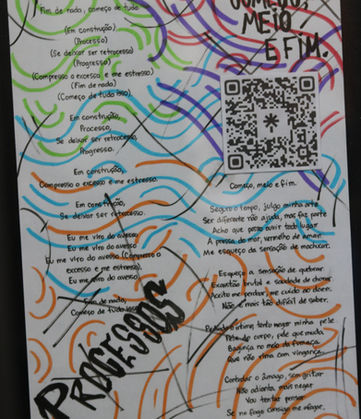 Fim de nada, começo de tudo
(Em construção)
(Processo)
(Se deixar ser retrocesso)
(Progresso)
(Compresso o excesso e me estresso)
(Fim de nada)
(Começo de tudo isso)
Em construção,
Processo,
Se deixar ser retrocesso,
Progresso.
Em construção,
Compresso o excesso e me estresso.
Em construção
Se deixar ser retrocesso.
Eu me viro do avesso
Eu me viro do avesso
Eu me viro do avesso (Compresso o
excesso e me estresso)
Eu me viro do avesso
Fim de nada,
Começo de tudo isso
PROCESSOS
COMEÇO,
MEIO
E FIM.
Começo, meio e fim.
Seguro o tempo, julgo minha arte
Ser diferente não ajuda, mas faz parte
Acho que posso ouvir todo lugar
A pressa do mar, vermelho de amar
Me esqueço da sensação de machucar.
Esqueço a sensação de quebrar
Exaustão brutal e saudade de
Aceito me perder, me cuido ao
Não é mais tão difícil de saber.
tento rasgar minha pele
Pele do corpo, pele que muda
Bagunça no meio da fumaça
Que não rima com vingança.
Controlar o âmago, sem gritar
Não adianta, mais negar
Vou tentar pensar
Se no fogo consigo me afogar.